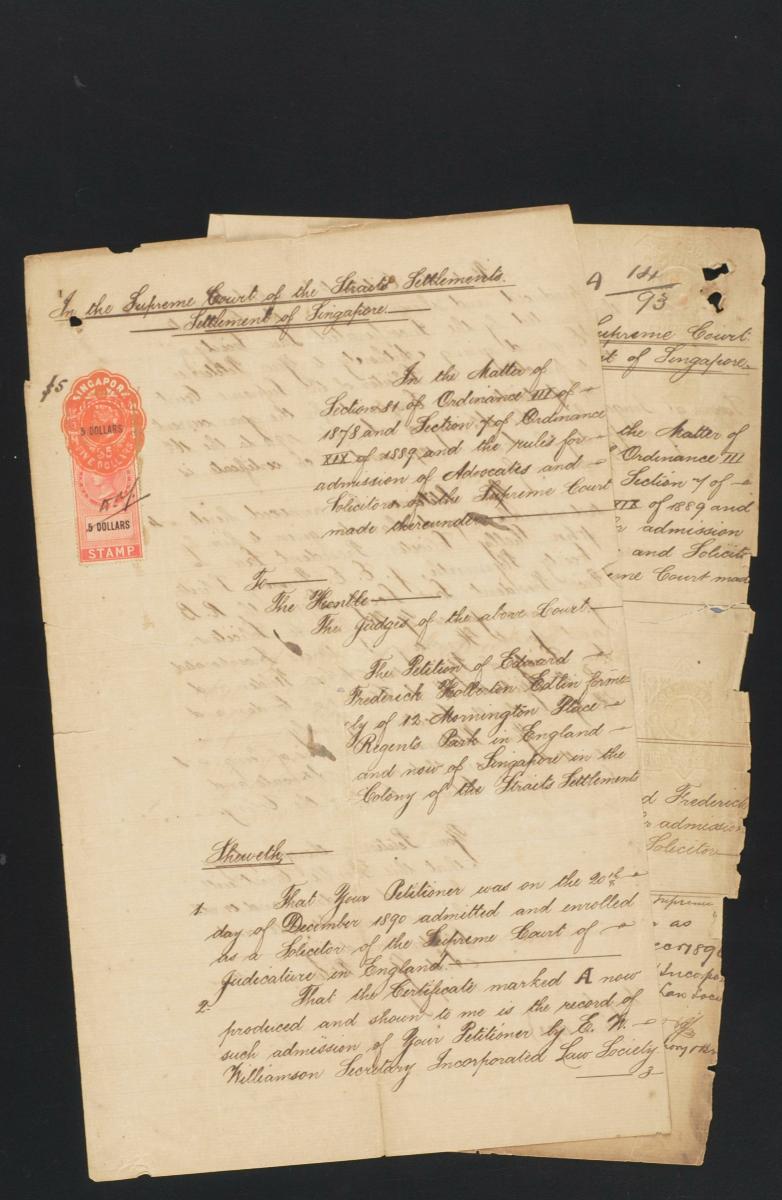 In the Supreme Court of the Straits Settlements.
Settlement of Singapore.
$5
SINGAPORE
5 DOLLARS
FIVE DOLLARS
5 DOLLARS
STAMP
In the Matter of
Section 81 of Ordinance III of
1878 and Section 7 of Ordinance
XIX of 1889 and the rules for
admission of Advocates and
Solicitors of the Supreme Court
made thereunder
To
The Honble
The Judges of the above Court.
The Petition of Edward
Frederick Hollerton Edlin forme-
ly of 12 Mornington Place
Regents Park in England
and now of Singapore in the
Colony of the Straits Settlements
Sheweth,
1. That Your Petitioner was on the 20th
day of December 1890 admitted and enrolled
as a Solicitor of the Supreme Court of
Judicature in England.
2. That the Certificate marked A now
produced and shown to me is the record of
such admission of Your Petitioner by E. W.
Williamson Secretary Incorporated Law Society
3
14
93
Supreme Court
of Singapore.
the Matter of
Ordinance III
Section 7 of
XIX of 1889 and
admission
and Solicito
Court made
Frederick
admission
Solicitor
Supreme
as
1890
Incorpo
Law Soci